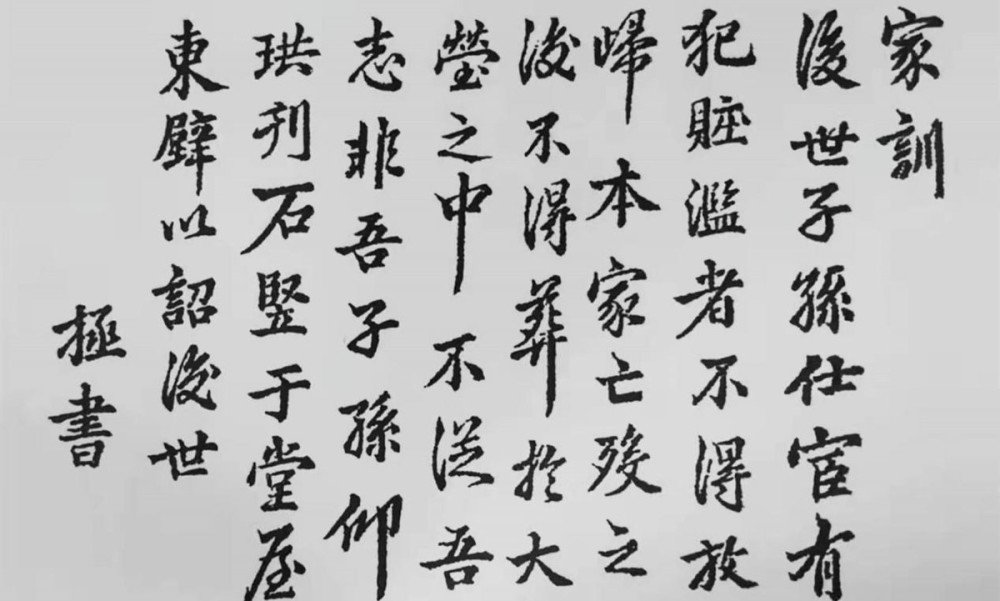 家訓
後世子孫仕宦有
犯賍濫者不得放
歸本家亡殁之
後不得葬於大
塋之中不從吾
志非吾子孫仰
珙刊石竪于堂屋
東壁以詔後世
極書